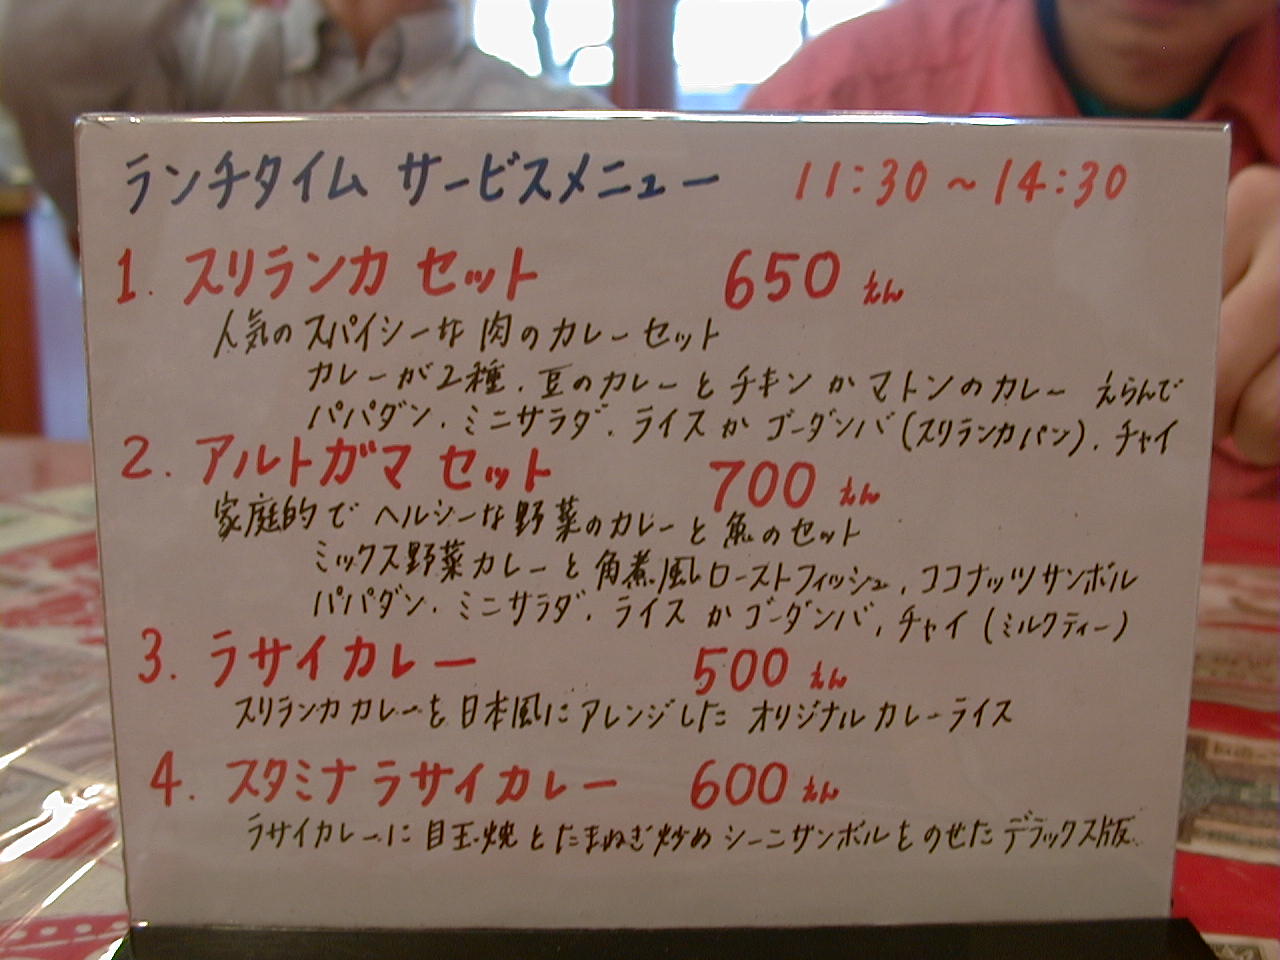 ランチタイム サービスメニュー 11:30～14:30
1. スリランカ セット 650 えん
人気の スパイシーな 肉の カレーセット
カレーが2種. 豆のカレーと チキン か マトンのカレー えらんで
パパダン. ミニサラダ. ライス か ゴーダンバ(スリランカパン). チャイ
2. アルトガマ セット 700 えん
家庭的で ヘルシーな 野菜のカレーと 魚のセット
ミックス野菜カレーと 角煮風ローストフィッシュ. ココナッツサンボル
パパダン. ミニサラダ. ライス か ゴーダンバ, チャイ (ミルクティー)
3. ラサイカレー 500 えん
スリランカカレーを 日本風に アレンジした オリジナル カレーライス
4. スタミナ ラサイカレー 600 えん
ラサイカレーに 目玉焼と たまねぎ炒め シーニサンボルをのせた デラックス版.